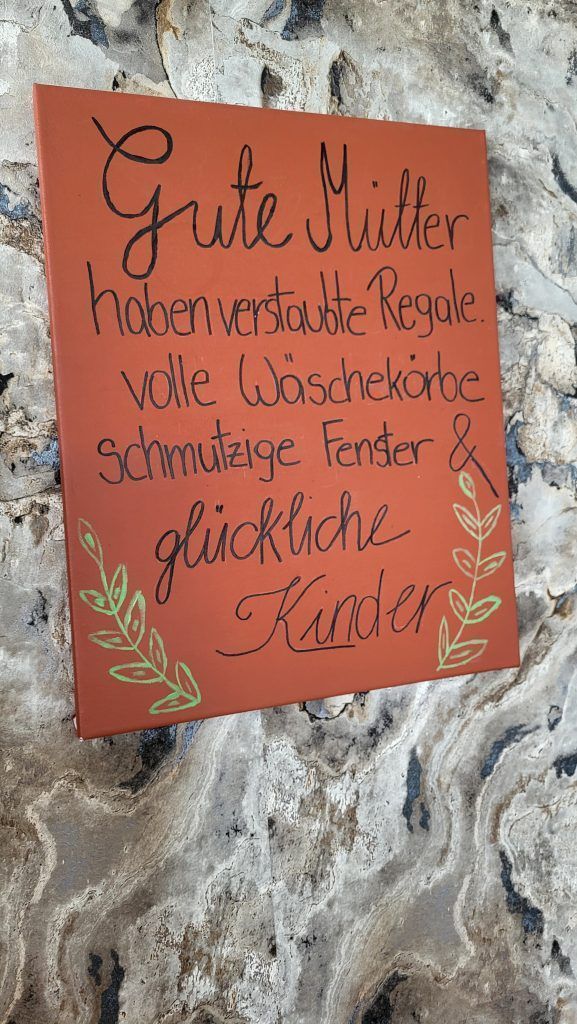 Gute Mütter
haben verstaubte Regale.
volle Wäschekörbe
schmutzige Fenster &
glückliche
Kinder